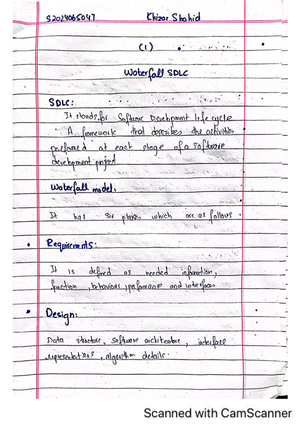 S2024065047 Khizar Shahid
(1)
Waterfall SDLC
SDLC:
It stands for Software Development life cycle
A framework that describes the activities
performed at each stage of a software
development project
Waterfall model:
It has six phases which are as follows.
Requirements:
It is defined as needed information,
function, behaviour, performance and interfaces
Design:
Data structure, software architecture, interface
representations, algorithm details.
Scanned with CamScanner